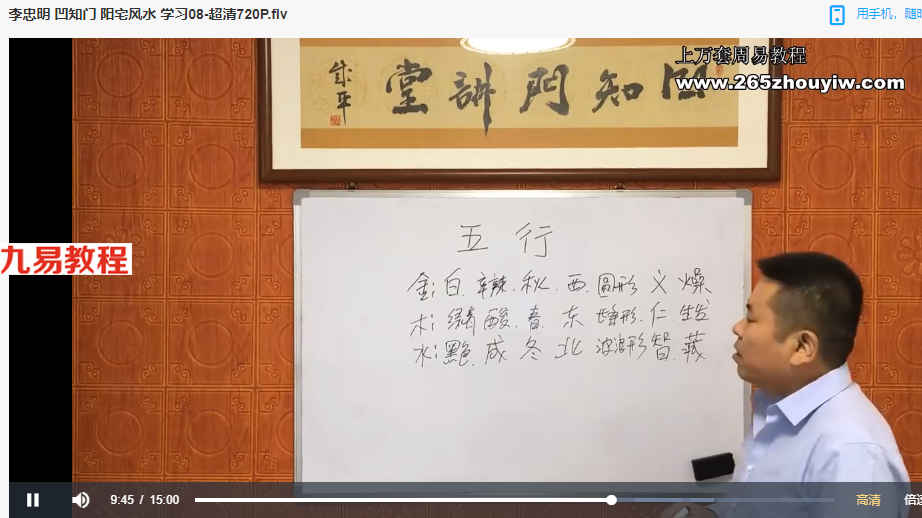 李忠明 凹知门 阳宅风水 学习08-超清720P.flv
用手机，随时
上万套周易教程
www.265zhouyiw.com
凹知門講堂
九易教程
五行
金:白.辣.秋.西.圆形 义 燥
木:绿 酸.春.东 形.仁 生发
水:黑色.咸 冬 北 波浪形 智.藏
9:45 / 15:00
高清
倍